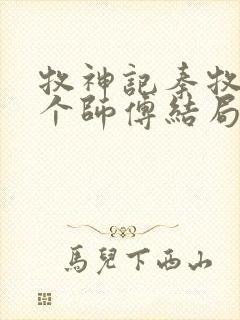 牧神記秦牧
个師傅結局
馬兒下西山